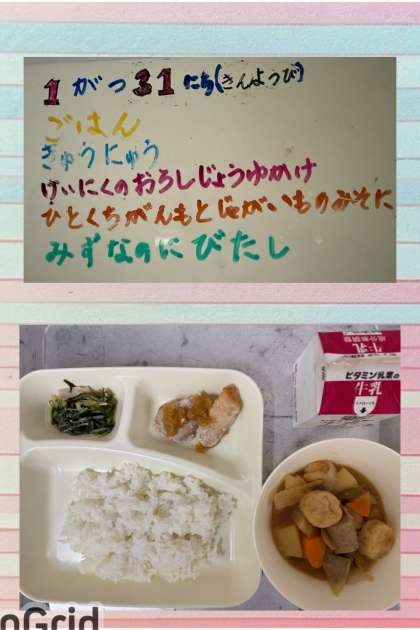 1がつ31にち(きんようび)
ごはん
ぎゅうにゅう
げいにくのおろしじょうゆかけ
ひとくちがんもとじゃがいものみそに
みずなのにびたし
牛乳
ビタミン乳業の
牛乳
nGrid